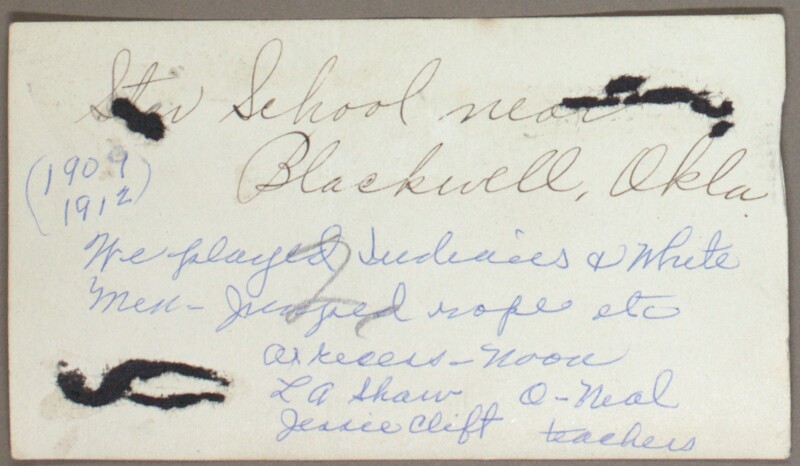 Star School near
Blackwell, Okla.
(1909
1912)
We played Indians & White
Men - Jumped rope etc
at recess - Noon
2
L A Shaw O-Neal
Jessie Clift teachers